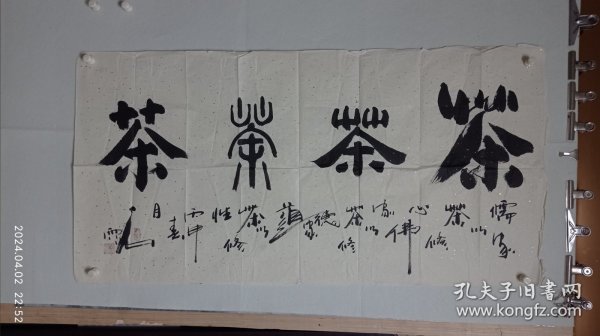 茶 茶 茶 茶
儒家以茶修心佛家以茶修德道家以茶修性
丙申春月
2024.04.02 22:52
孔夫子旧书网
www.kongfz.com